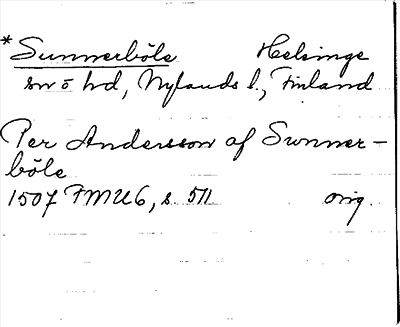 *Sunnerböle Helsinge
sn o hd, Nylands l., Finland
Per Andersson af Sunner-
böle
1507 FMU 6, s. 511 orig.